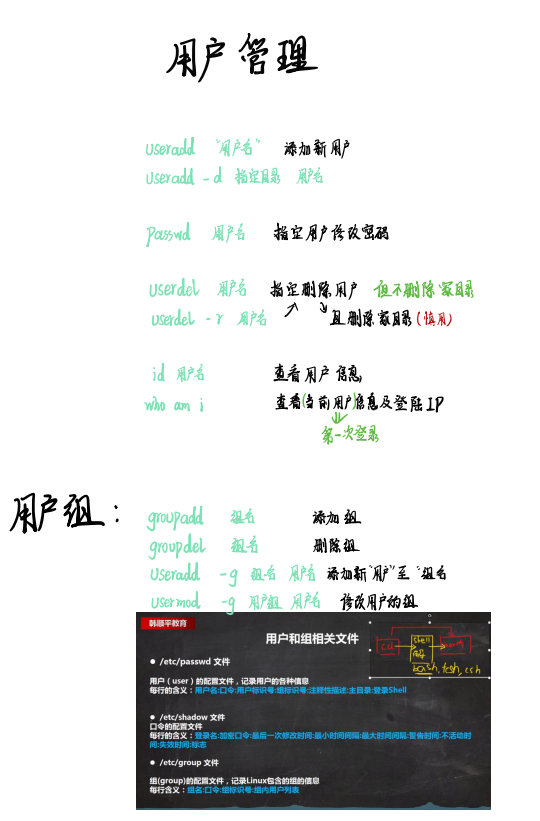 用户管理
useradd "用户名" 添加新用户
useradd -d 指定目录 用户名
passwd 用户名 指定用户修改密码
userdel 用户名 指定删除用户 但不删除家目录
userdel -r 用户名 且删除家目录(慎用)
id 用户名 查看用户信息
who am i 查看(当前用户)信息及登陆IP
第一次登录
用户组:
groupadd 组名 添加组
groupdel 组名 删除组
useradd -g 组名 用户名 添加新"用户"至"组名
usermod -g 用户组 用户名 修改用户的组
韩顺平教育
用户和组相关文件
shell
bash, tcsh, csh
● /etc/passwd 文件
用户(user)的配置文件,记录用户的各种信息
每行的含义:用户名:口令:用户标识号:组标识号:注释性描述:主目录:登录Shell
● /etc/shadow 文件
口令的配置文件
每行的含义:登录名:加密口令:最后一次修改时间:最小时间间隔:最大时间间隔:警告时间:不活动时
间:失效时间:标志
● /etc/group 文件
组(group)的配置文件,记录Linux包含的组的信息
每行含义:组名:口令:组标识号:组内用户列表